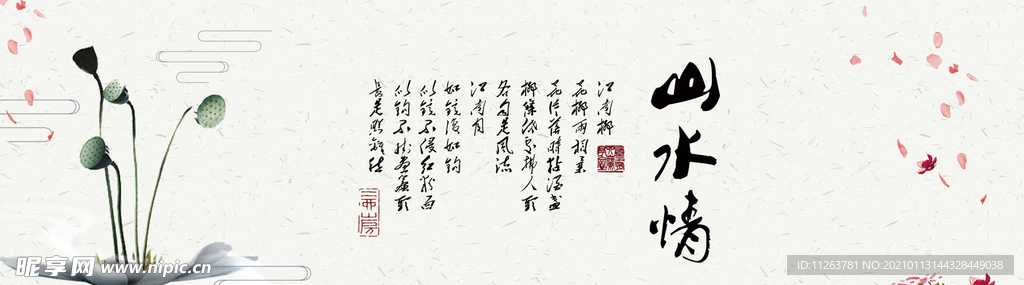 山水情
江南柳
花柳兩相柔
花片落時粘酒盞
柳條低處拂人頭
各自是風流
江南月
如鏡復如鉤
似鏡不侵紅粉面
似鉤不掛畫簾頭
長是照離愁
昵享网 www.nipic.cn
ID:11263781 NO:20210113144328449038